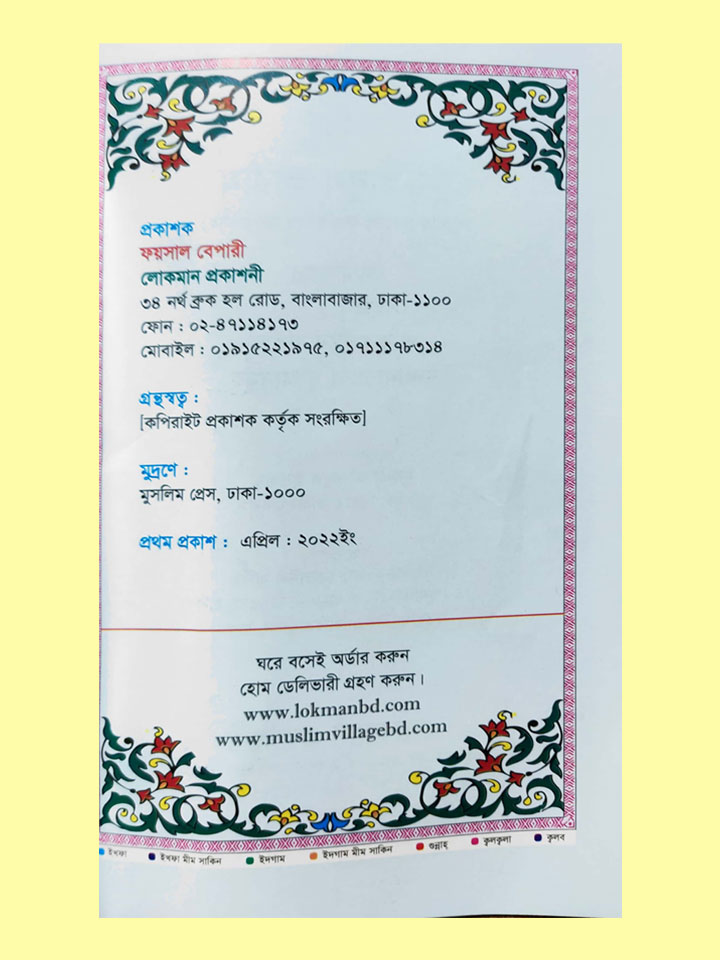 প্রকাশক
ফয়সাল বেপারী
লোকমান প্রকাশনী
৩৪ নর্থ ব্রুক হল রোড, বাংলাবাজার, ঢাকা-১১০০
ফোন : ০২-৪৭১১৪১৭৩
মোবাইল : ০১৯১৫২২১৯৭৫, ০১৭১১১৭৮৩১৪
গ্রন্থস্বত্ব :
[কপিরাইট প্রকাশক কর্তৃক সংরক্ষিত]
মুদ্রণে :
মুসলিম প্রেস, ঢাকা-১০০০
প্রথম প্রকাশ : এপ্রিল : ২০২২ইং
ঘরে বসেই অর্ডার করুন
হোম ডেলিভারী গ্রহণ করুন।
www.lokmanbd.com
www.muslimvillagebd.com
ইখফা ইখফা মীম সাকিন ইদগাম ইদগাম মীম সাকিন গুন্নাহ্ কুলকুলা কুলব